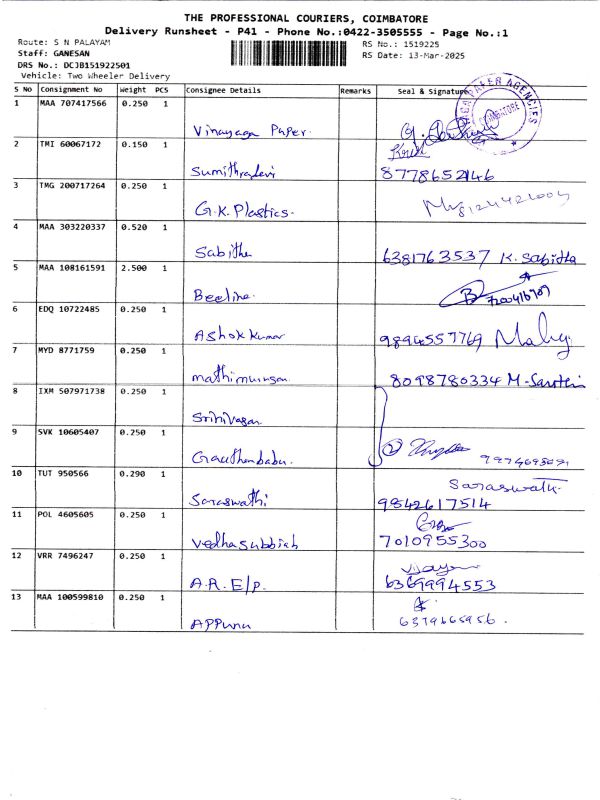 THE PROFESSIONAL COURIERS, COIMBATORE
Delivery Runsheet - P41 - Phone No.:0422-3505555 - Page No.:1
Route: S N PALAYAM
RS No.: 1519225
Staff: GANESAN
RS Date: 13-Mar-2025
DRS No.: DCJB151922501
Vehicle: Two Wheeler Delivery
S NO Consignment No Weight PCS Consignee Details Remarks Seal & Signature
1 MAA 707417566 0.250 1
Vinayaga Paper.
2 TMI 60067172 0.150 1
Sumithradevi 8778652146
3 TMG 200717264 0.250 1
G.K. Plastics.
4 MAA 303220337 0.520 1
Sabitha 6381763537 K. Sabitha
5 MAA 108161591 2.500 1
Beeline.
6 EDQ 10722485 0.250 1
Ashok kumar 9894557769
7 MYD 8771759 0.250 1
mathimurugan 8098780334
8 IXM 507971738 0.250 1
Srinivasan
9 SVK 10605407 0.250 1
Gauthambabu.
10 TUT 950566 0.290 1 Saraswathi
Saraswathi 9842617514
11 POL 4605605 0.250 1
vedhasubbiah 7010955300
12 VRR 7496247 0.250 1
A.R. E/p. 6369994553
13 MAA 100599810 0.250 1
APPunu 6379665956.